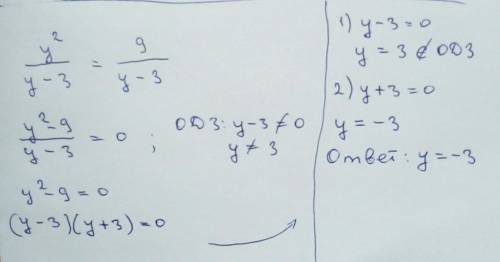 y²/(y-3) = 9/(y-3)
(y²-9)/(y-3) = 0 ; ОДЗ: y-3≠0
y≠3
y²-9=0
(y-3)(y+3)=0
1) y-3=0
y=3 ∉ ОДЗ
2) y+3=0
y=-3
Ответ: y=-3